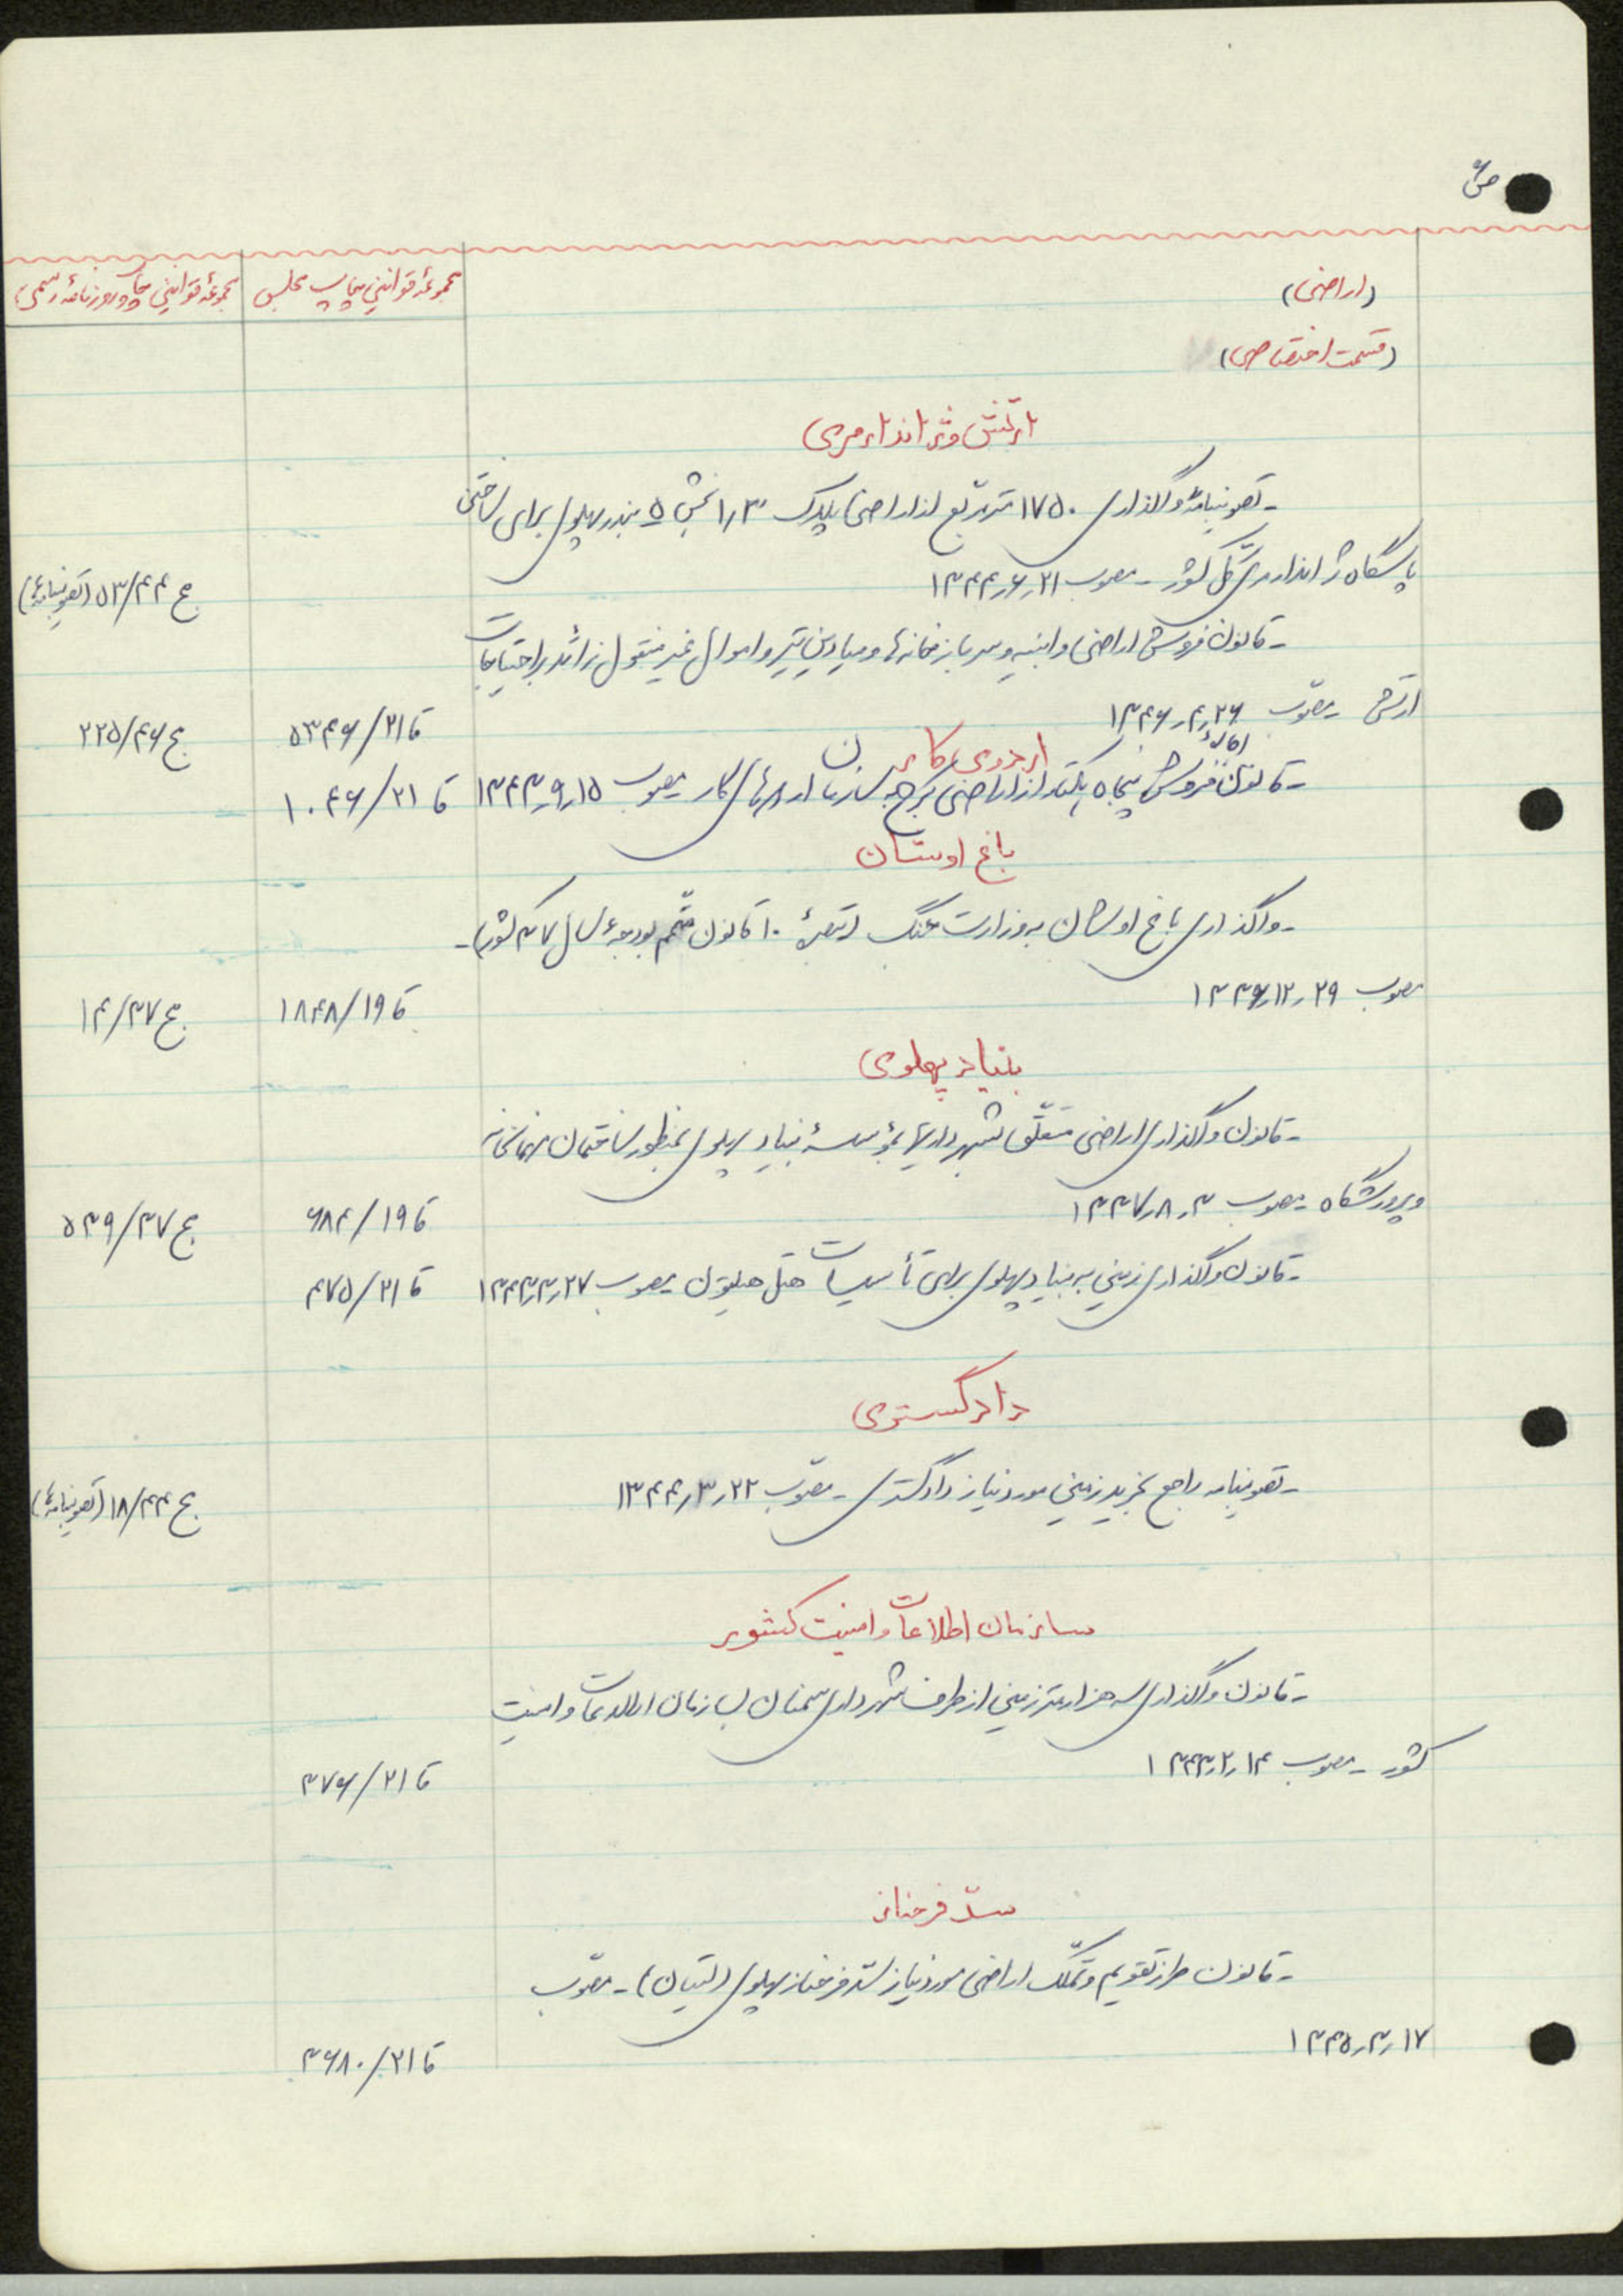 (اراضی)
مجموعهٔ قوانین چاپ مجلس
مجموعهٔ قوانین چاپ روزنامهٔ رسمی
(قسمت اختصاصی)
ارتش وژاندارمری
- تصویبنامهٔ واگذاری ۱۷۵۰ مترمربع از اراضی پلاک ۱٫۳۰ بخش ۵ بندرپهلوی برای ساختن
پاسگاه ژاندارمری کل کشور - مصوب ۱۳۴۴٫۶٫۲۱
ج ۵۳/۴۴ (تصویبنامه‌ها)
- قانون فروش اراضی و ابنیه و سربازخانه‌ها و میادین تیر و اموال غیرمنقول زائد بر احتیاجات
ارتش - مصوّب ۱۳۴۶٫۴٫۲۶
قا ۵۳۴۶/۲۱
ج ۲۲۵/۴۶
اردوی کار
- قانون فروش پنجاه هکتار از اراضی کرج به سازمان اردوهای کار مصوب ۱۳۴۳٫۹٫۱۵
قا ۱۰۴۶/۲۱
باغ اوشان
- واگذاری باغ اوشان به وزارت جنگ (تبصرهٔ ۱۰ قانون متمّم بودجهٔ سال ۳۷ کشور) -
مصوب ۱۳۳۶٫۱۲٫۲۹
قا ۱۸۴۸/۱۹
ج ۱۴/۳۷
بنیاد پهلوی
- قانون واگذاری اراضی متعلّق بشهرداریها بمؤسسهٔ بنیاد پهلوی بمنظور ساختمان مهمانخانه
و پرورشگاه - مصوب ۱۳۳۷٫۸٫۳
قا ۶۸۴/۱۹
ج ۵۳۹/۳۷
- قانون واگذاری زمین به بنیاد پهلوی برای تأسیسات هتل هیلتون - مصوب ۱۳۴۳٫۳٫۲۷
قا ۴۷۵/۲۱
دادگستری
- تصویبنامه راجع بخرید زمین مورد نیاز دادگستری - مصوّب ۱۳۴۴٫۳٫۲۲
ج ۱۸/۴۴ (تصویبنامه‌ها)
سازمان اطلاعات و امنیت کشور
- قانون واگذاری سه هزار متر زمین از طرف شهرداری سمنان بسازمان اطلاعات و امنیت
کشور - مصوب ۱۳۴۳٫۲٫۱۴
قا ۳۷۶/۲۱
سدّ فرحناز
- قانون طرز تقویم و تملّک اراضی مورد نیاز سدّ فرحناز پهلوی (لتیان) - مصوّب
۱۳۴۵٫۳٫۱۷
قا ۳۶۸۰/۲۱